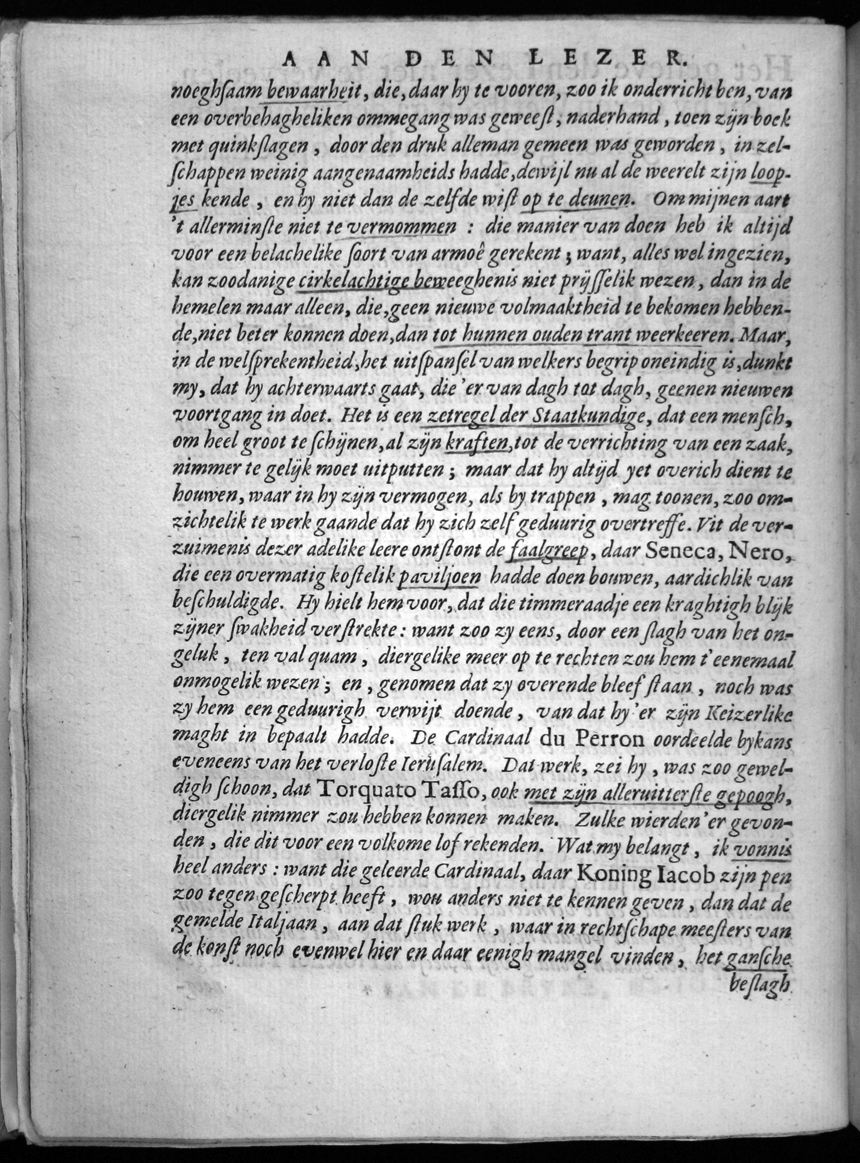 AAN DEN LEZER.
noeghſaam bewaarheit, die, daar hy te vooren, zoo ik onderricht ben, van
een overbehagheliken ommegang was geweeſt, naderhand, toen zijn boek
met quinkſlagen, door den druk alleman gemeen was geworden, in zel-
ſchappen weinig aangenaamheids hadde, dewijl nu al de weerelt zijn loop-
jes kende, en hy niet dan de zelfde wiſt op te deunen. Om mijnen aart
't allerminſte niet te vermommen : die manier van doen heb ik altijd
voor een belachelike ſoort van armoê gerekent; want, alles wel ingezien,
kan zoodanige cirkelachtige beweeghenis niet prijſſelik wezen, dan in de
hemelen maar alleen, die, geen nieuwe volmaaktheid te bekomen hebben-
de, niet beter konnen doen, dan tot hunnen ouden trant weerkeeren. Maar,
in de welſprekentheid, het uitſpanſel van welkers begrip oneindig is, dunkt
my, dat hy achterwaarts gaat, die 'er van dagh tot dagh, geenen nieuwen
voortgang in doet. Het is een zetregel der Staatkundige, dat een menſch,
om heel groot te ſchijnen, al zijn kraften, tot de verrichting van een zaak,
nimmer te gelijk moet uitputten; maar dat hy altijd yet overich dient te
houwen, waar in hy zijn vermogen, als by trappen, mag toonen, zoo om-
zichtelik te werk gaande dat hy zich zelf geduurig overtreffe. Vit de ver-
zuimenis dezer adelike leere ontſtont de faalgreep, daar Seneca, Nero,
die een overmatig koſtelik paviljoen hadde doen bouwen, aardichlik van
beſchuldigde. Hy hielt hem voor, dat die timmeraadje een kraghtigh blijk
zijner ſwakheid verſtrekte: want zoo zy eens, door een ſlagh van het on-
geluk, ten val quam, diergelike meer op te rechten zou hem t'eenemaal
onmogelik wezen; en, genomen dat zy overende bleef ſtaan, noch was
zy hem een geduurigh verwijt doende, van dat hy 'er zijn Keizerlike
maght in bepaalt hadde. De Cardinaal du Perron oordeelde bykans
eveneens van het verloſte Ieruſalem. Dat werk, zei hy, was zoo gewel-
digh ſchoon, dat Torquato Taſſo, ook met zijn alleruitterſte gepoogh,
diergelik nimmer zou hebben konnen maken. Zulke wierden 'er gevon-
den, die dit voor een volkome lof rekenden. Wat my belangt, ik vonnis
heel anders: want die geleerde Cardinaal, daar Koning Iacob zijn pen
zoo tegen geſcherpt heeft, wou anders niet te kennen geven, dan dat de
gemelde Italjaan, aan dat ſtuk werk, waar in rechtſchape meeſters van
de konſt noch evenwel hier en daar eenigh mangel vinden, het ganſche
beſlagh